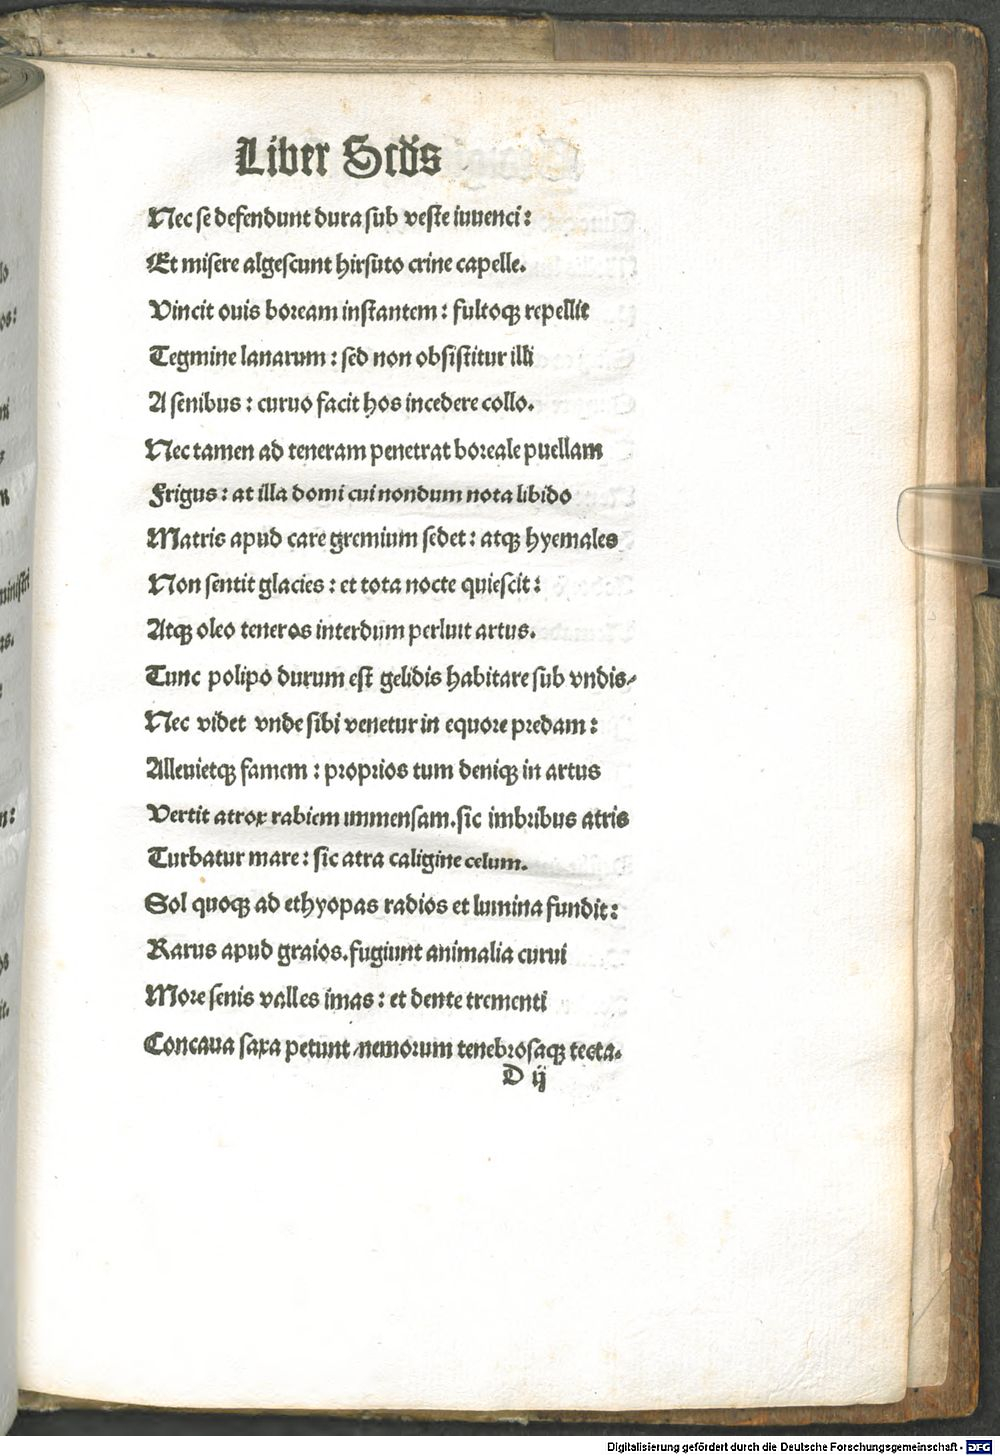 Liber Scd̄s
Nec se defendunt dura sub veste iuuenci:
Et misere algescunt hirsuto crine capelle.
Vincit ouis boream instantem: fultoqꝫ repellit
Tegmine lanarum: sed non obsistitur illi
A senibus: curuo facit hos incedere collo.
Nec tamen ad teneram penetrat boreale puellam
Frigus: at illa domi cui nondum nota libido
Matris apud care gremium sedet: atqꝫ hyemales
Non sentit glacies: et tota nocte quiescit:
Atqꝫ oleo teneros interdum perluit artus.
Tunc polipo durum est gelidis habitare sub vndis/
Nec videt vnde sibi venetur in equore predam:
Alleuietqꝫ famem: proprios tum deniqꝫ in artus
Vertit atrox rabiem immensam. sic imbribus atris
Turbatur mare: sic atra caligine celum.
Sol quoqꝫ ad ethyopas radios et lumina fundit:
Rarus apud graios. fugiunt animalia curui
More senis valles imas: et dente trementi
Concaua saxa petunt/nemorum tenebrosaqꝫ tecta.
D ij
lo
os:
ministri
Digitalisierung gefördert durch die Deutsche Forschungsgemeinschaft - DFG